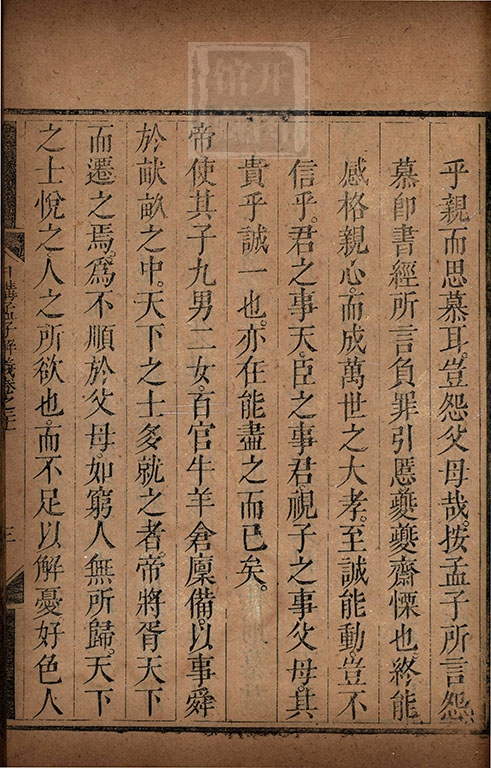 乎親而思慕耳。豈怨父母哉。按孟子所言怨
慕即書經所言負罪引慝夔夔齋慄也終能
感格親心。而成萬世之大孝。至誠能動。豈不
信乎。君之事天。臣之事君。視子之事父母。其
貴乎誠一也。亦在能盡之而已矣。
帝使其子九男二女。百官牛羊倉廩備。以事舜
於畎畝之中。天下之士多就之者。帝將胥天下
而遷之焉。為不順於父母。如窮人無所歸。天下
之士悅之。人之所欲也。而不足以解憂好色人
日講孟子解義卷之三
三